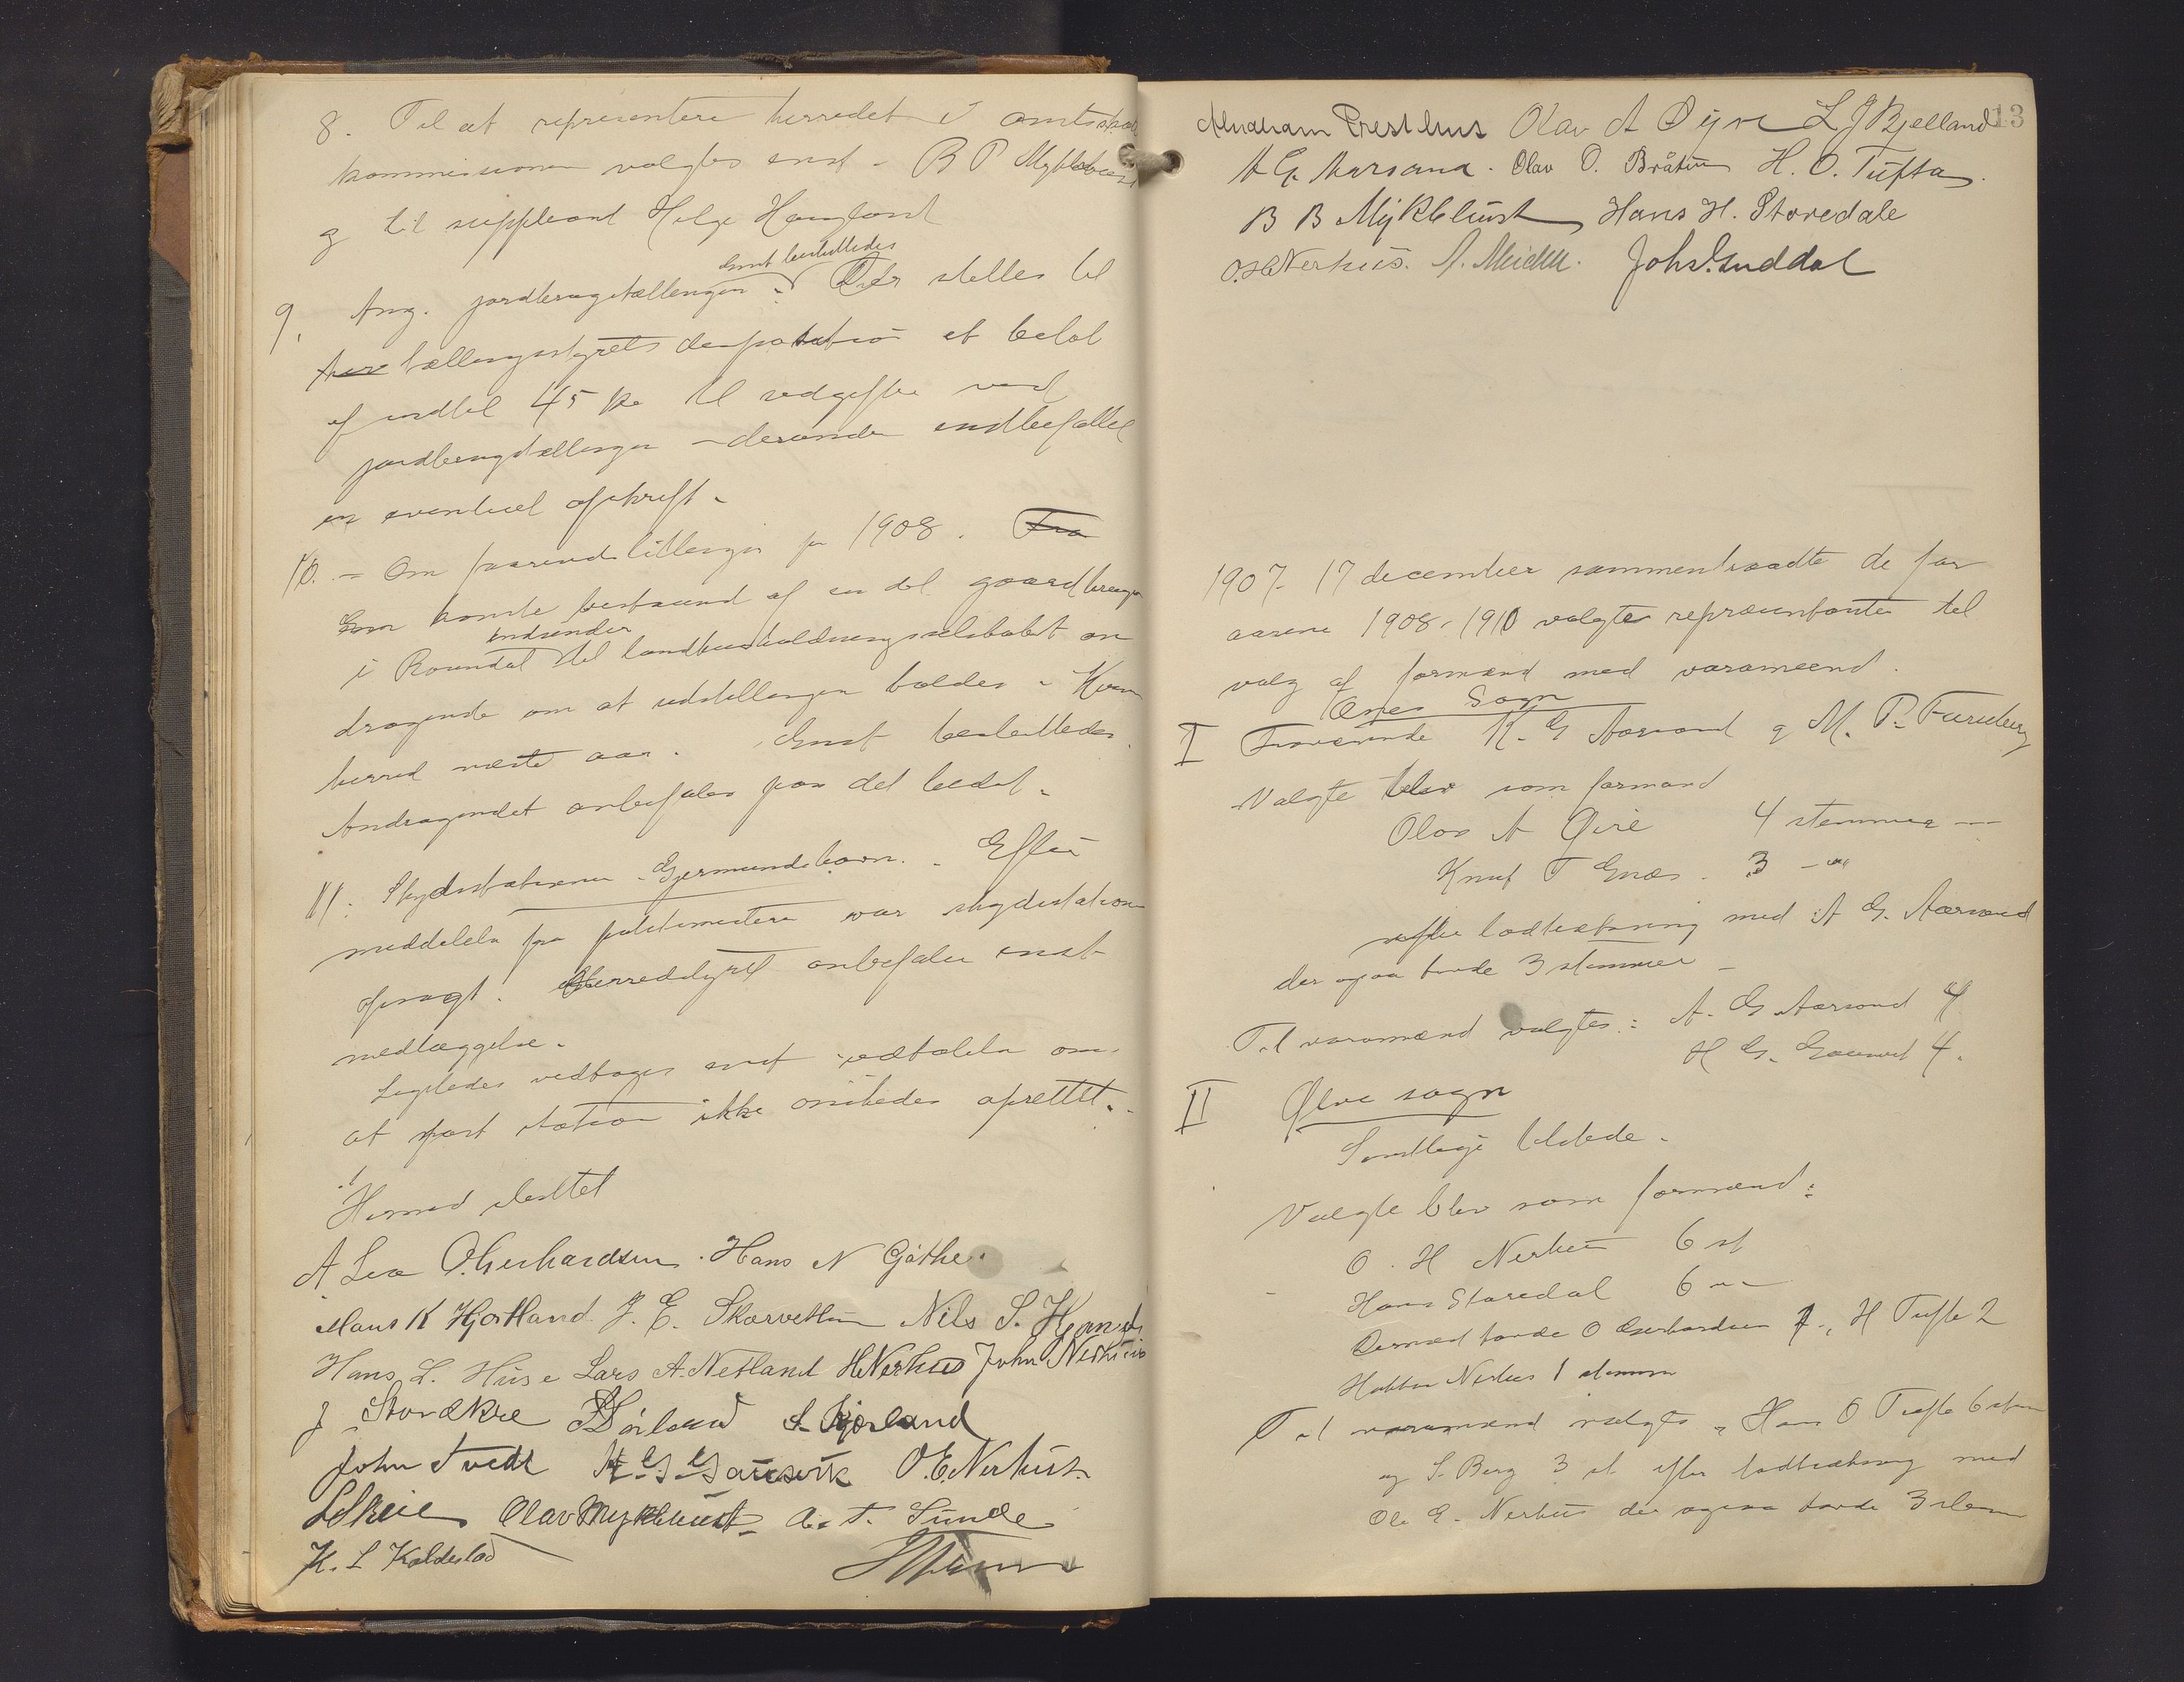 8. Til at representere herredet i amtsskat
kommissionen valgtes enst. B P Myklebust
og til suppleant Helge Haugland
enst besluttedes
9. Ang. jordbrugstællingen. Der stilles til
tællingsstyrets disposition et beløb
af indtil 45 kr til udgifter ved
jordbrugstællingen – derunder indbefattet
en eventuel afskrift.
10. – Om udstillinger for 1908. Fra
indsender
i Rosendal til landhusholdningsselskabet an
dragende om at udstillingen holdes i Kvin
herred næste aar. Enst besluttedes
Andragendet anbefales paa det bedst.
11. Skydsstationen Gjermundshavn. Efter
meddelelse fra politimesteren var skydsstation
opsagt. Herredsstyret anbefaler enst
nedlæggelse.
Ligeledes vedtoges enst udtalelse om
at fast station ikke ønskedes oprettet.
Hermed sluttet
A Lea O. Gerhardsen. Hans N Gjøthe.
Hans K Hjortland. J. E. Skarvethun Nils S.
Hans L. Huse Lars A. Netland H Nerhus John Nerhus
J Storækre
John Tvedt H G Gausvik O. E. Nerhus
Olav Myklebust A. T. Sunde
K. L Koldestad
Abraham Presthus Olav A Øyre L J Bjelland 13
A G Aarsand. Olav O. Bråten H. O. Tufta.
B B Myklebust Hans H. Storedale
O. H Nerhus. Joh. Guddal
1907. 17 december sammentraadte de for
aarene 1908–1910 valgte repræsentanter til
valg af formænd med varamænd.
Ænes Sogn
I Fraværende K. G Aarsand og M. P. Furuberg
Valgte blev som formænd
Olav A Øire 4 stemmer —
Knut T Enæs. 3 – "
efter lodtrækning med A G. Aarsand
der ogsaa havde 3 stemmer –
Til varamænd valgtes: A. G Aarsand 4
H G. Gausvik 4.
II Ølve sogn
Samtlige tilstede.
Valgte blev som formænd:
O. H Nerhus 6 st
Hans Storedal 6 " –
Dernæst havde O Gerhardsen 1., H Tufte 2
Nerhus 1 stemme
Til varamænd valgtes, Hans O Tufte 6 stem
og S. Berg 3 st efter lodtrækning med
Ole E. Nerhus der ogsaa havde 3 stem